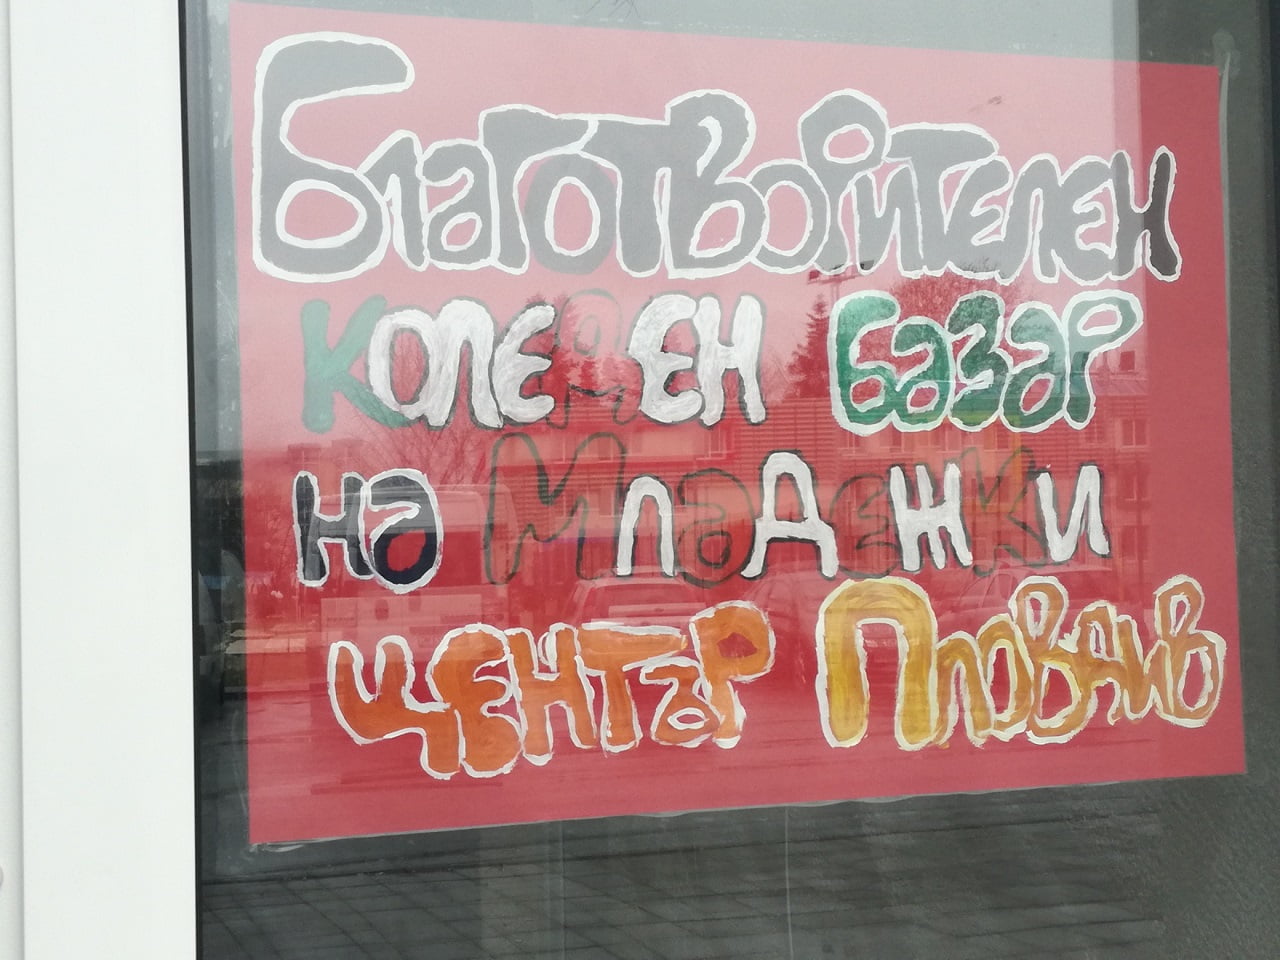 Благотворителен
Коледен Базар
на Младежки
център Пловдив